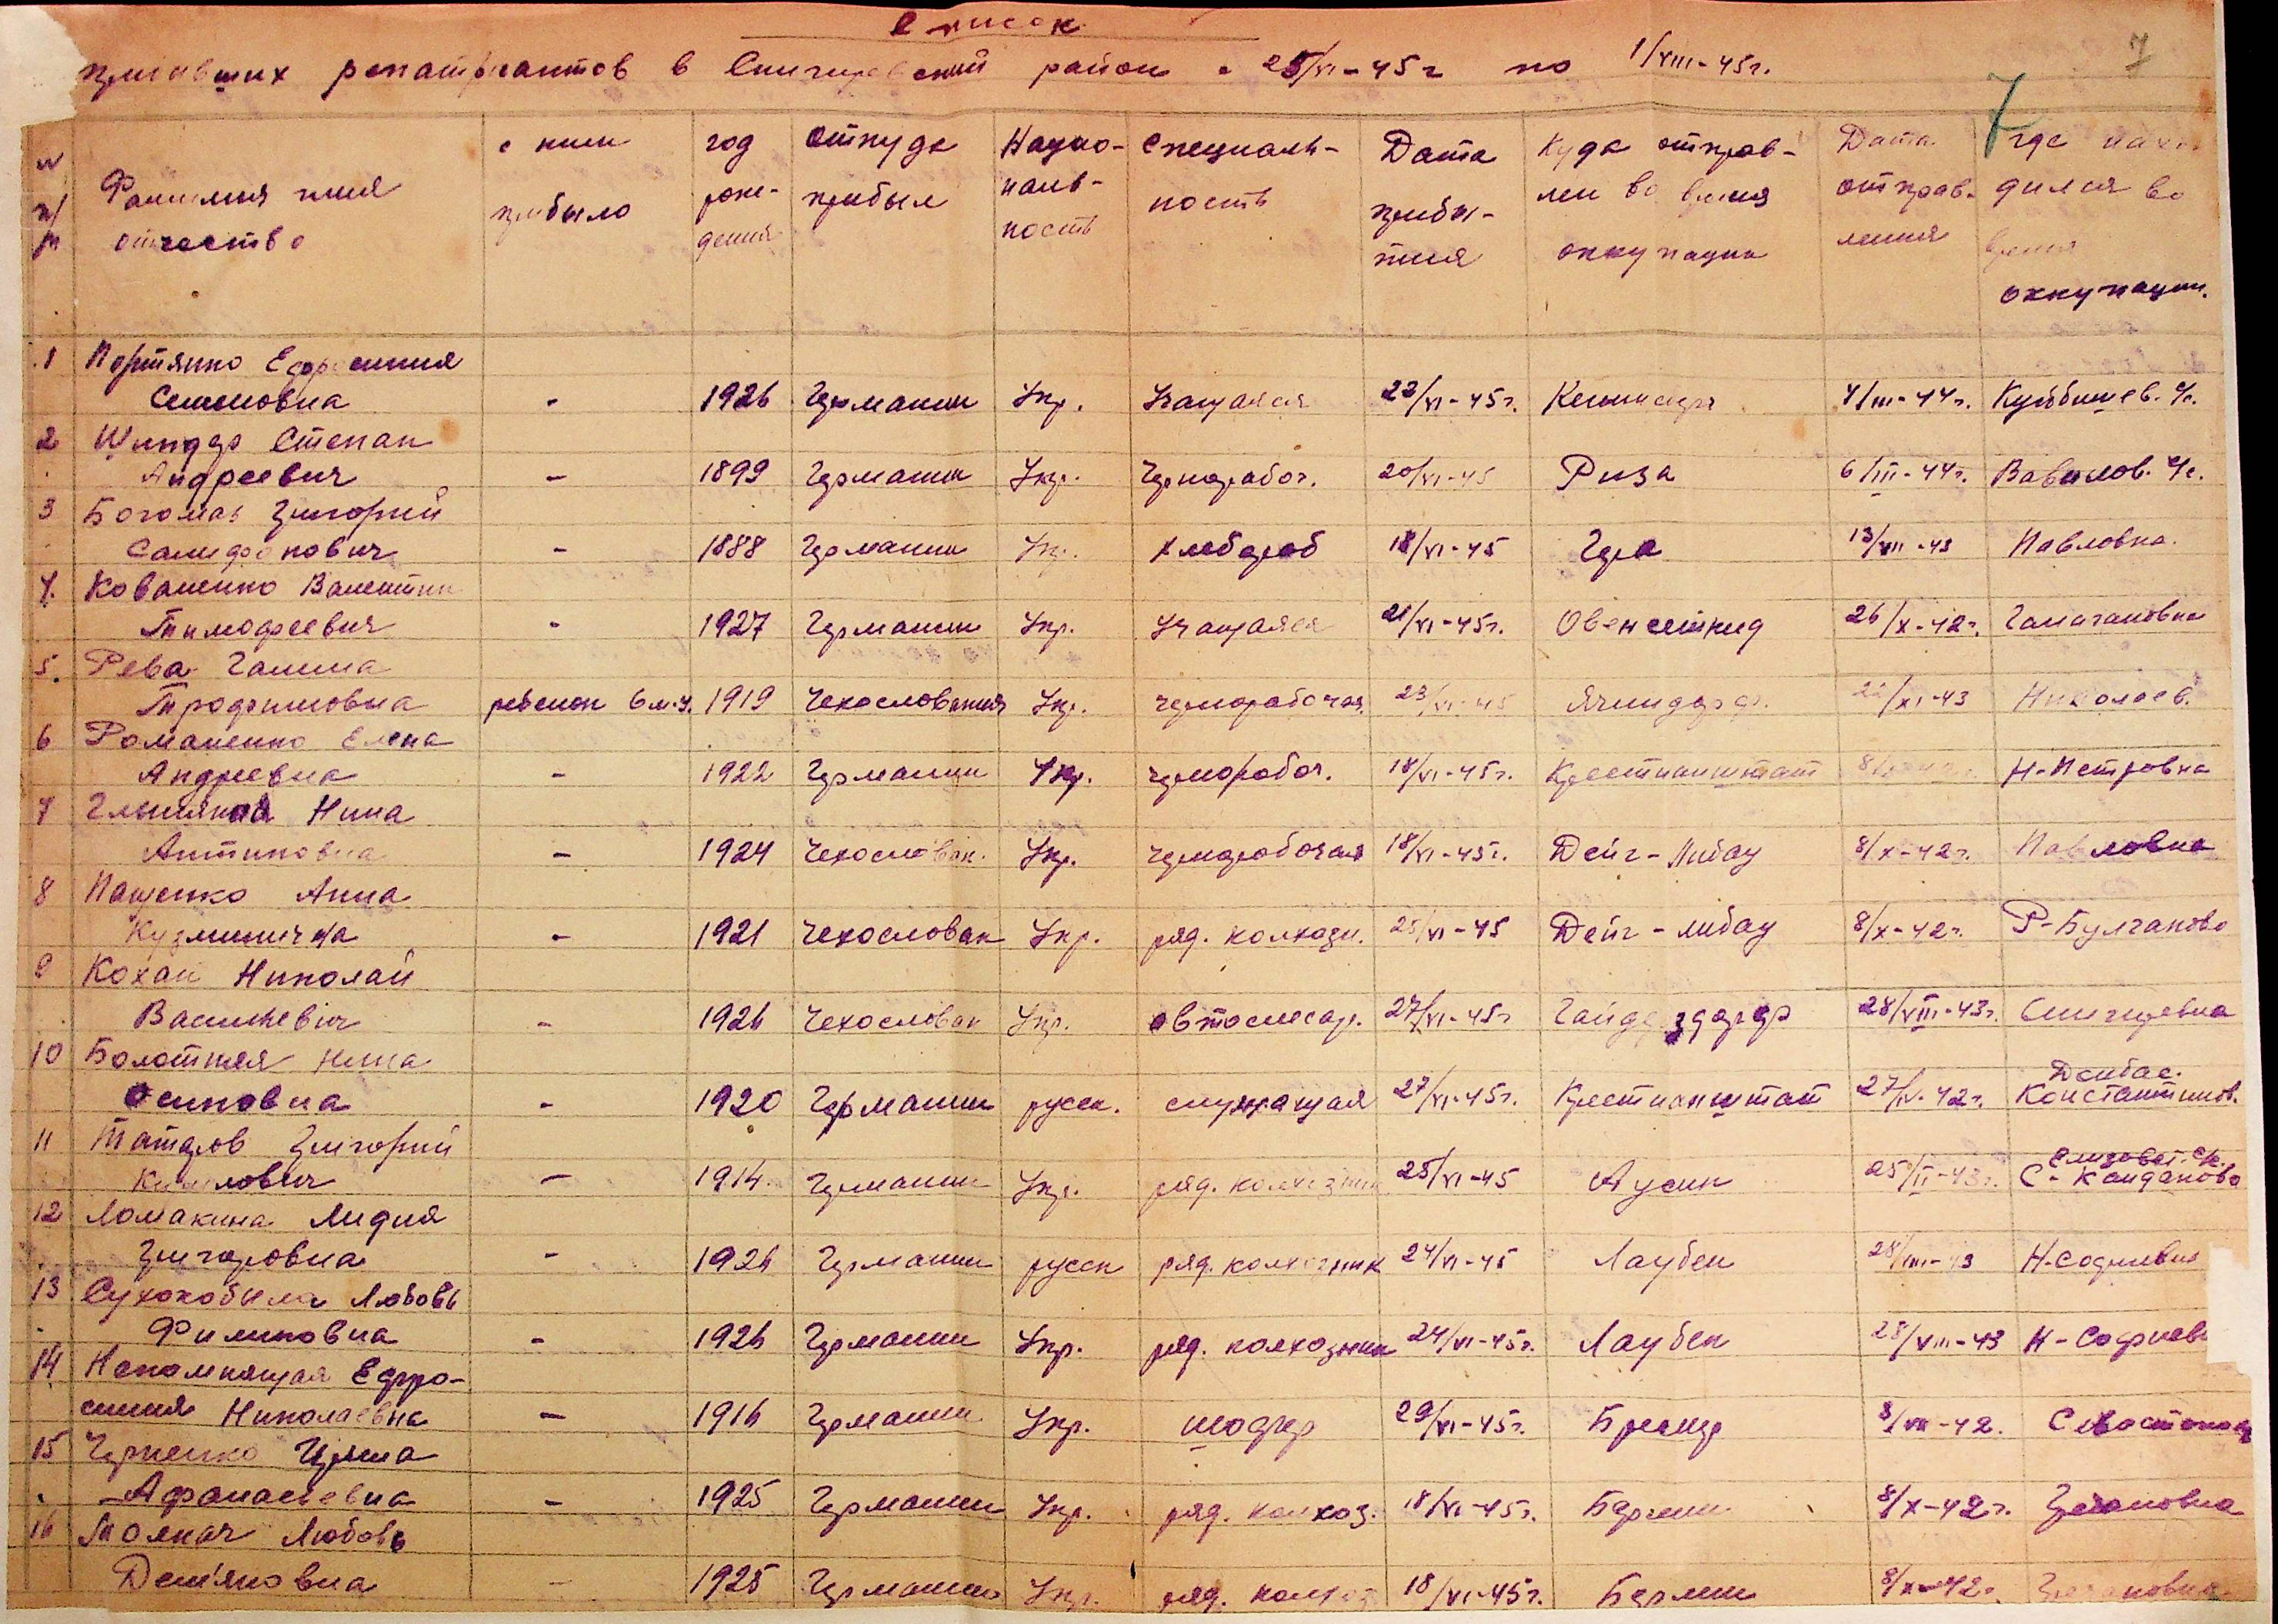 Список
прибывших репатриантов в Снигиревский район с 25/VI-45г по 1/VIII-45г.
7
7
№ п/п Фамилия имя отчество с ним прибыло год рождения откуда прибыл Национальность Специальность Дата прибытия Куда отправлен во время оккупации Дата отправления где находился во время оккупации.
1 Портянко Ефросиния
Семеновна - 1926 Германии Укр. Учащаяся 22/VI-45г. 4/III-44г. Куйбишев. с/с.
2 Шиндер Степан
Андреевич - 1899 Германии Укр. Чернорабоч. 20/VI-45 Риза 6/III-44г. Вавилов. с/с.
3 Богомаз Григорий
- 1888 Германии Укр. хлебороб 18/VI-45 Гера 13/VII-43 Павловка.
4. Коваленко Валентин
Тимофеевич - 1927 Германии Укр. Учащаяся 21/VI-45г. Овенсткид 26/X-42г. Галагановка
5. Рева Галина
Трофимовна ребенок 6 м-ц. 1919 Чехословакия Укр. чернорабочая 23/VI-45 22/XI-43 Николаев.
6 Романенко Елена
Андреевна - 1922 Германии Укр. чернорабоч. 18/VI-45г. Крестианштат Н-Петровка
7 Нина
Антиповна - 1924 Чехословак. Укр. чернорабочая 18/VI-45г. Дейч-Либау 8/X-42г. Павловка
8 Пащенко Анна
Кузминична - 1921 Чехословак Укр. ряд. колхозн. 25/VI-45 Дейч-либау 8/X-42г. Р-Булгаково
9 Кохай Николай
Васильевич - 1926 Чехословак Укр. автослесар. 27/VI-45г 28/VIII-43г. Снигиревка
10 Болотняя Нина
Осиповна - 1920 Германии русск. служащая 27/VI-45г. Крестианштат 27/V-42г. Донбас. Константинов.
11 Григорий
- 1914 Германии Укр. ряд. колхозник 25/VI-45 Аусик 25/II-43г. Елизовет. с/с. С-Кандаково
12 Ломакина Лидия
Григоровна - 1926 Германии русск ряд. колхозник 24/VI-45 Лаубен 28/VIII-43 Н-Софиевка
13 Сухокобила Любовь
Филиповна - 1926 Германии Укр. ряд. колхозник 24/VI-45г. Лаубен 28/VIII-43 Н-Софиев
14 Непомнящая Ефро-
синия Николаевна - 1916 Германии Укр. шофер 29/VI-45г. 8/VII-42. Севастополь
15 Черненко Ирина
Афанасьевна - 1925 Германии Укр. ряд. колхоз. 18/VI-45г. Берлин 8/X-42г.
16 Толкач Любовь
Демяновна - 1925 Германии Укр. ряд. колхоз 18/VI-45г. Берлин 8/X-42г.